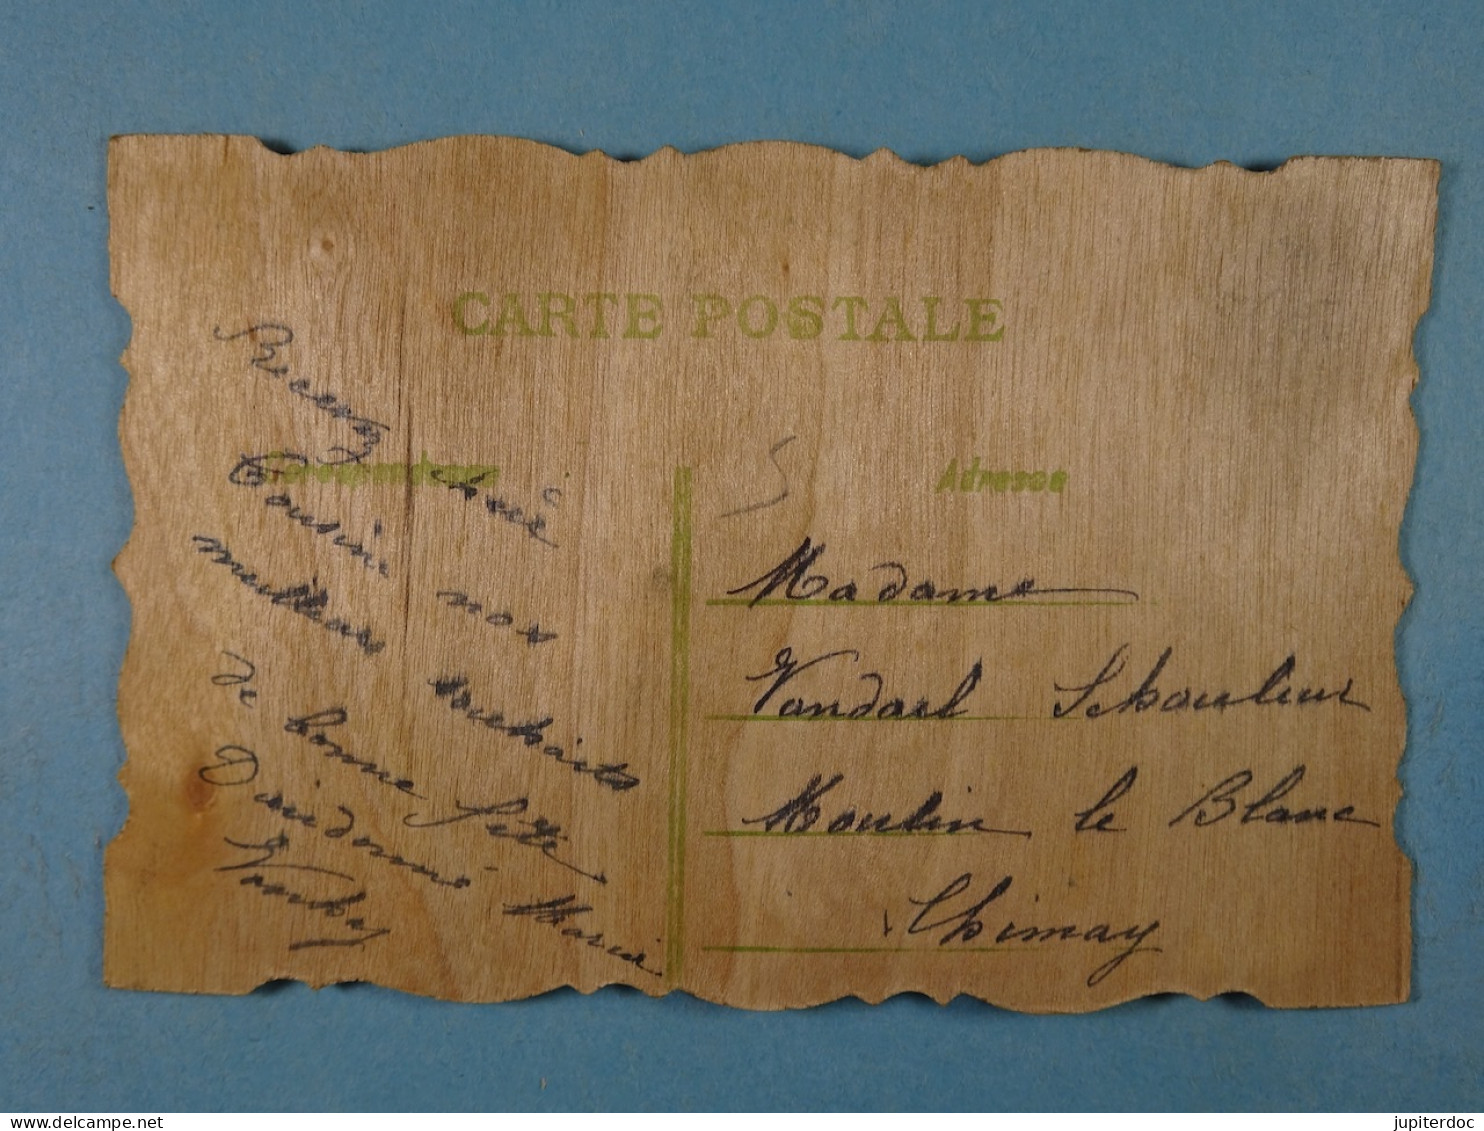 CARTE POSTALE
Correspondance
Adresse
Recevez chère
Cousine nos
meilleurs souhaits
de bonne fête
Marie
Madame
Vandael
Moulin le Blanc
Chimay
delcampe.net
jupiterdoc